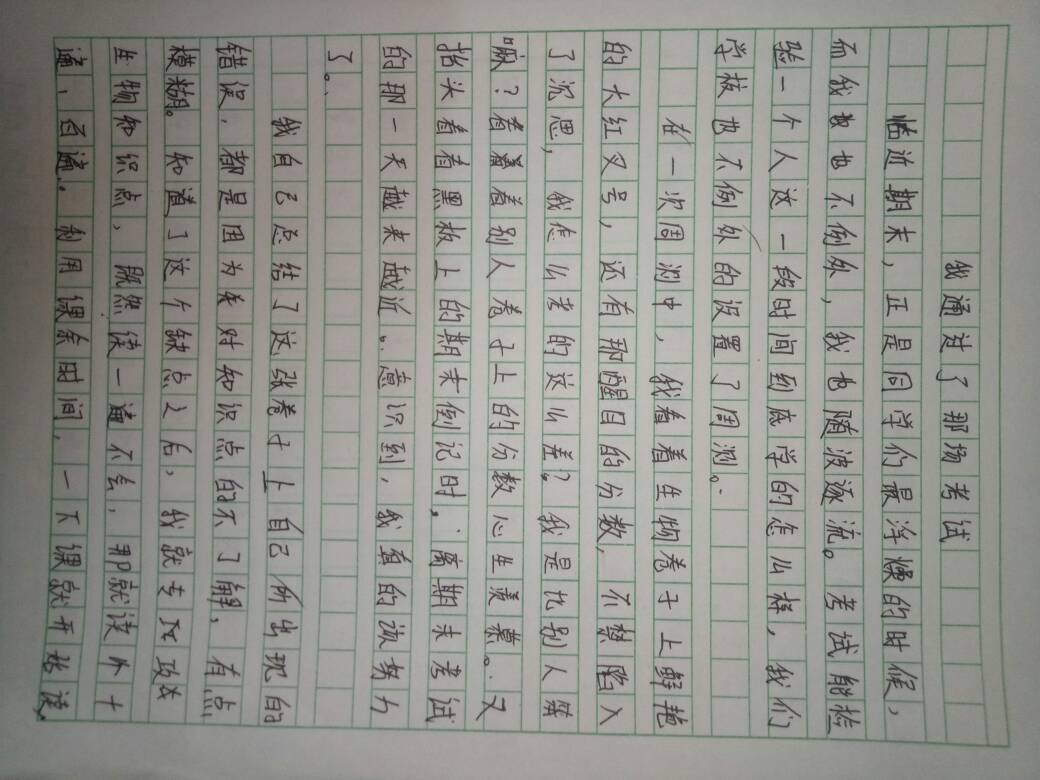 我通过了那场考试
临近期末，正是同学们最浮燥的时候，
而我也不例外，我也随波逐流。考试能检
验一个人这一段时间到底学的怎么样，我们
学校也不例外的设置了周测。
在一次周测中，我看着生物卷子上鲜艳
的大红叉号，还有那醒目的分数，不禁陷入
了沉思，我怎么考的这么差？我是比别人笨
嘛？看着别人卷子上的份数心生羡慕。又
抬头看着黑板上的期末倒记时，离期末考试
的那一天越来越近。意识到，我真的该努力
了。
我自己总结了这张卷子上自己所出现的
错误，都是因为我对知识点的不了解，有点
模糊。知道了这个缺点之后，我就专攻
生物知识点，既然读一遍不会，那就读个十
遍，百遍。利用课余时间，一下课就开始读